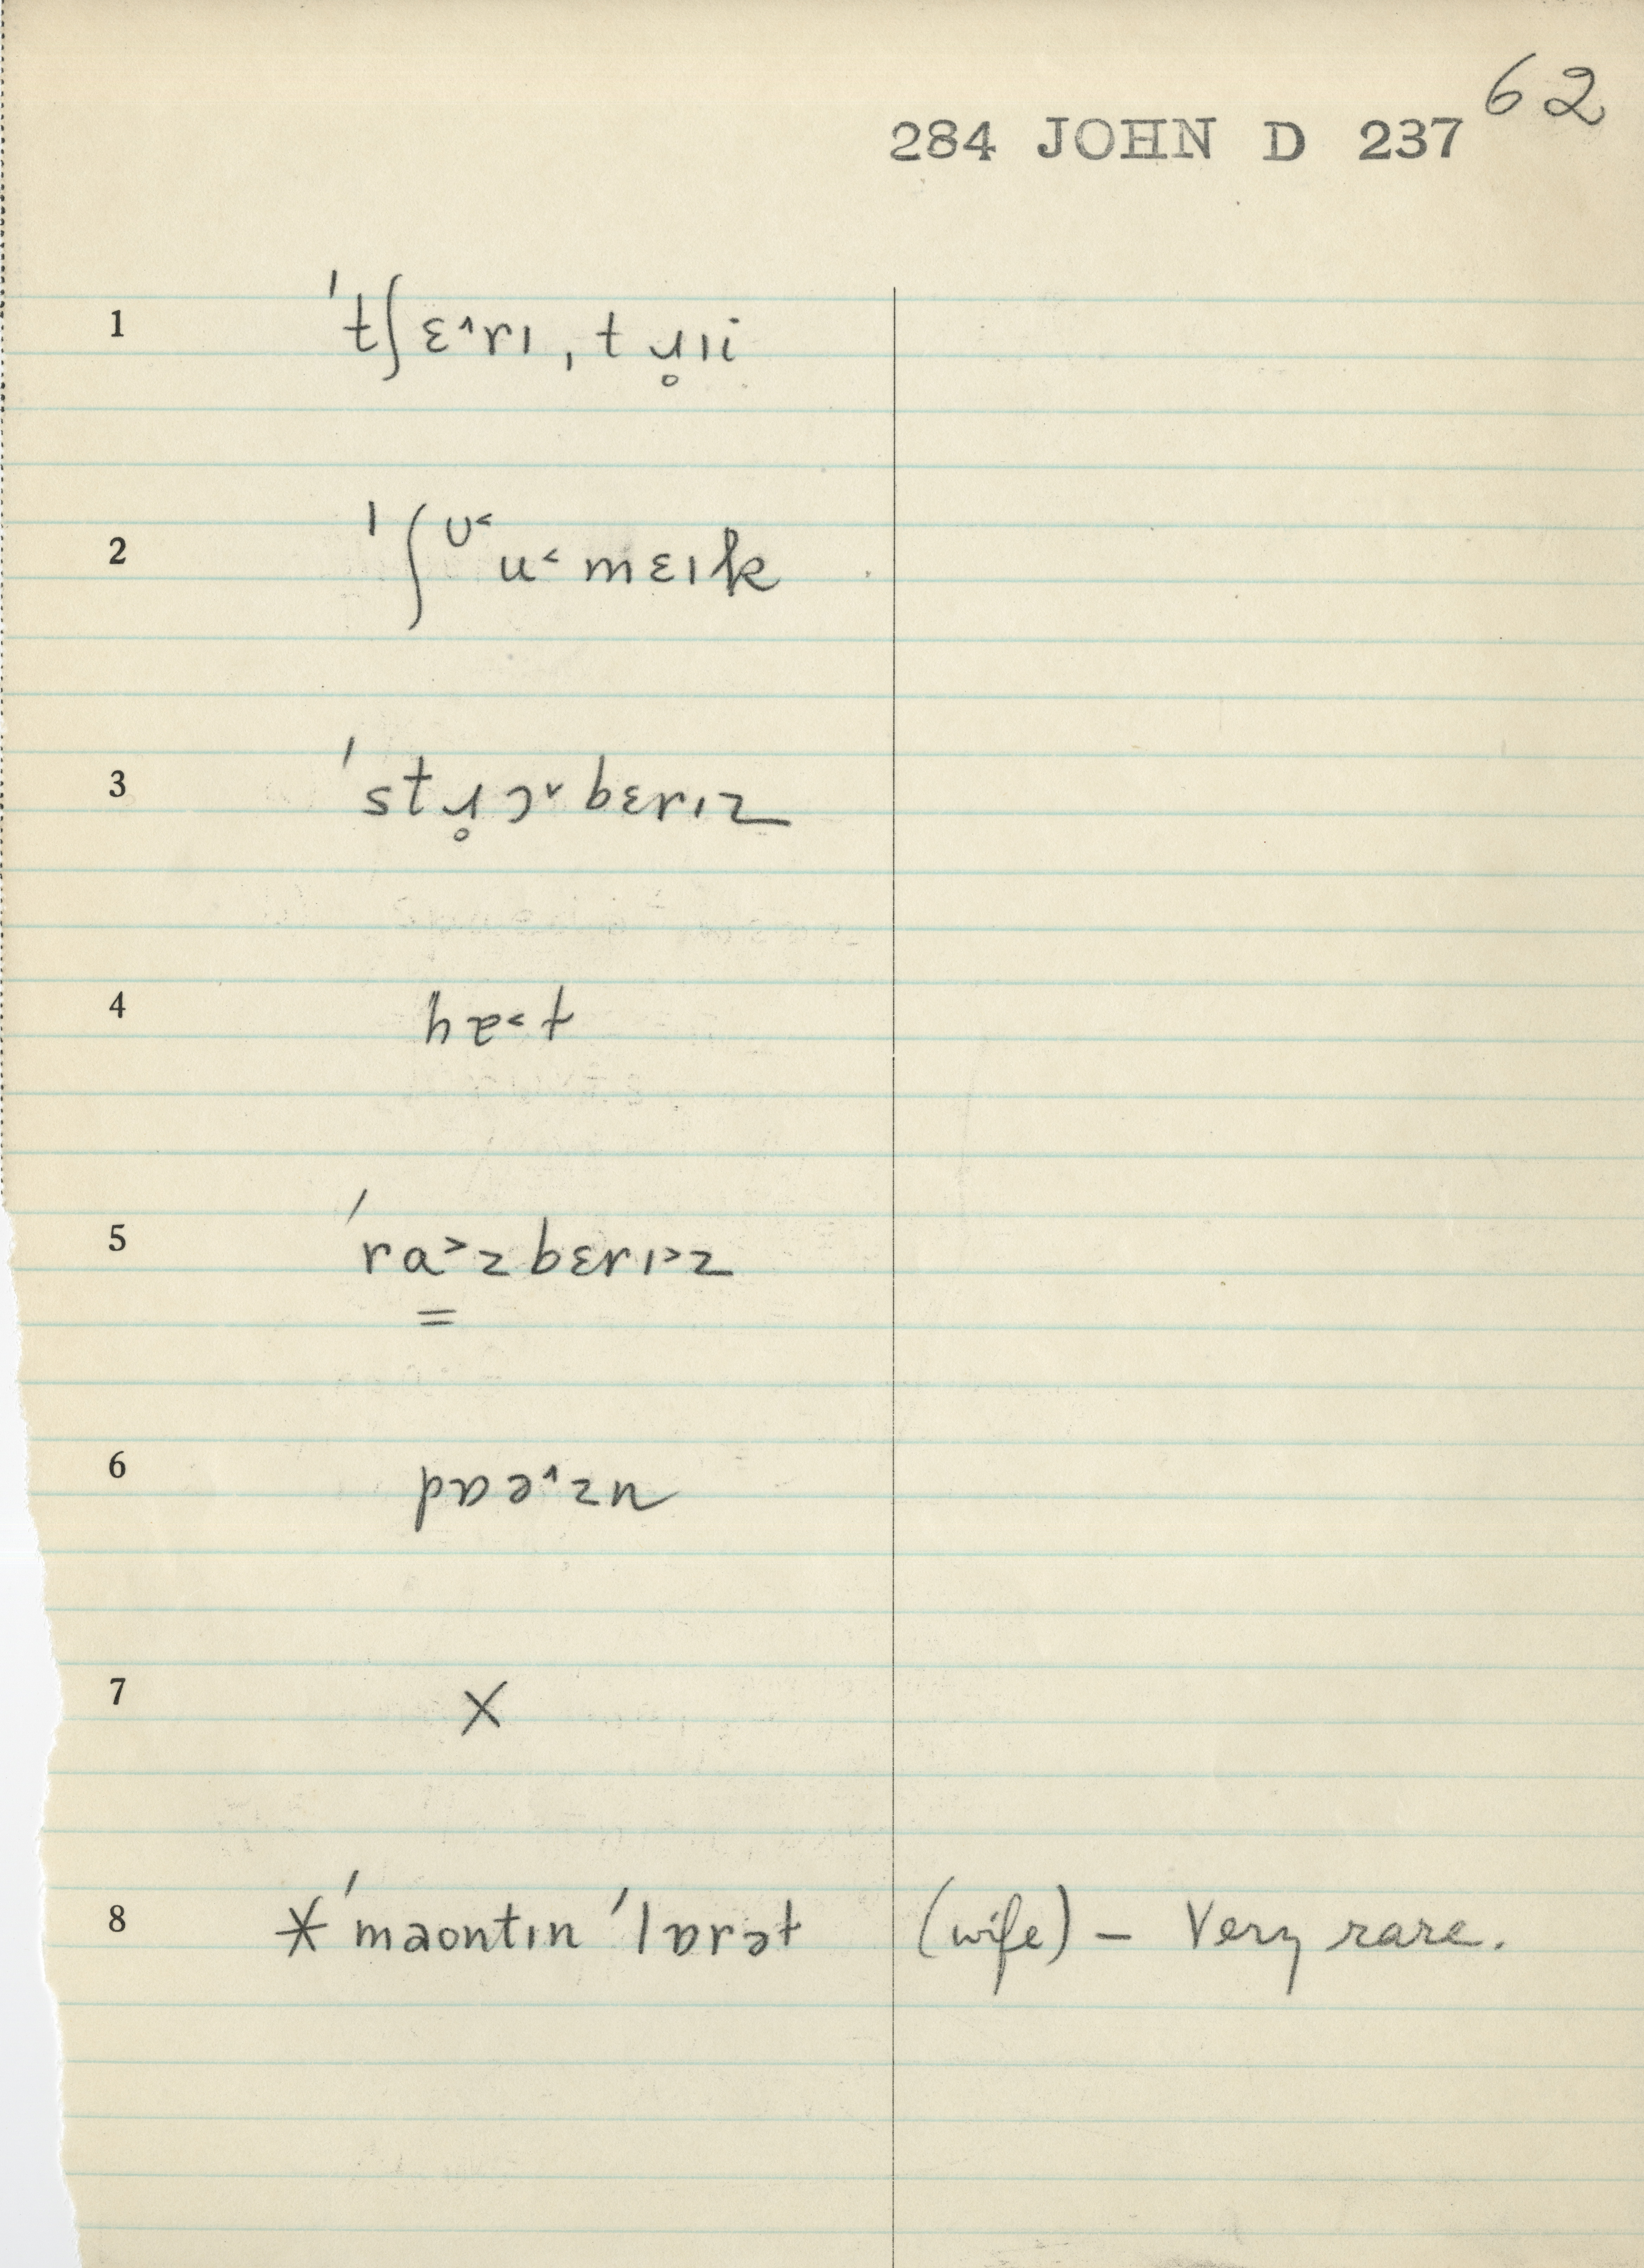 62
284 JOHN D 237
1 ˈtʃɛ˄rɪ, tɹ̥ɪi
2 ˈʃᶷ˂u˂mɛɪk
3 ˈstɹ̥ɔ˅bɛrɪz
4 ɥɐ˂t
5 ˈra˃zbɛrɪ˃z
6 pɒə˄zn
7 X
8 *ˈmaontɪn ˈlɒrət (wife) – Very rare.